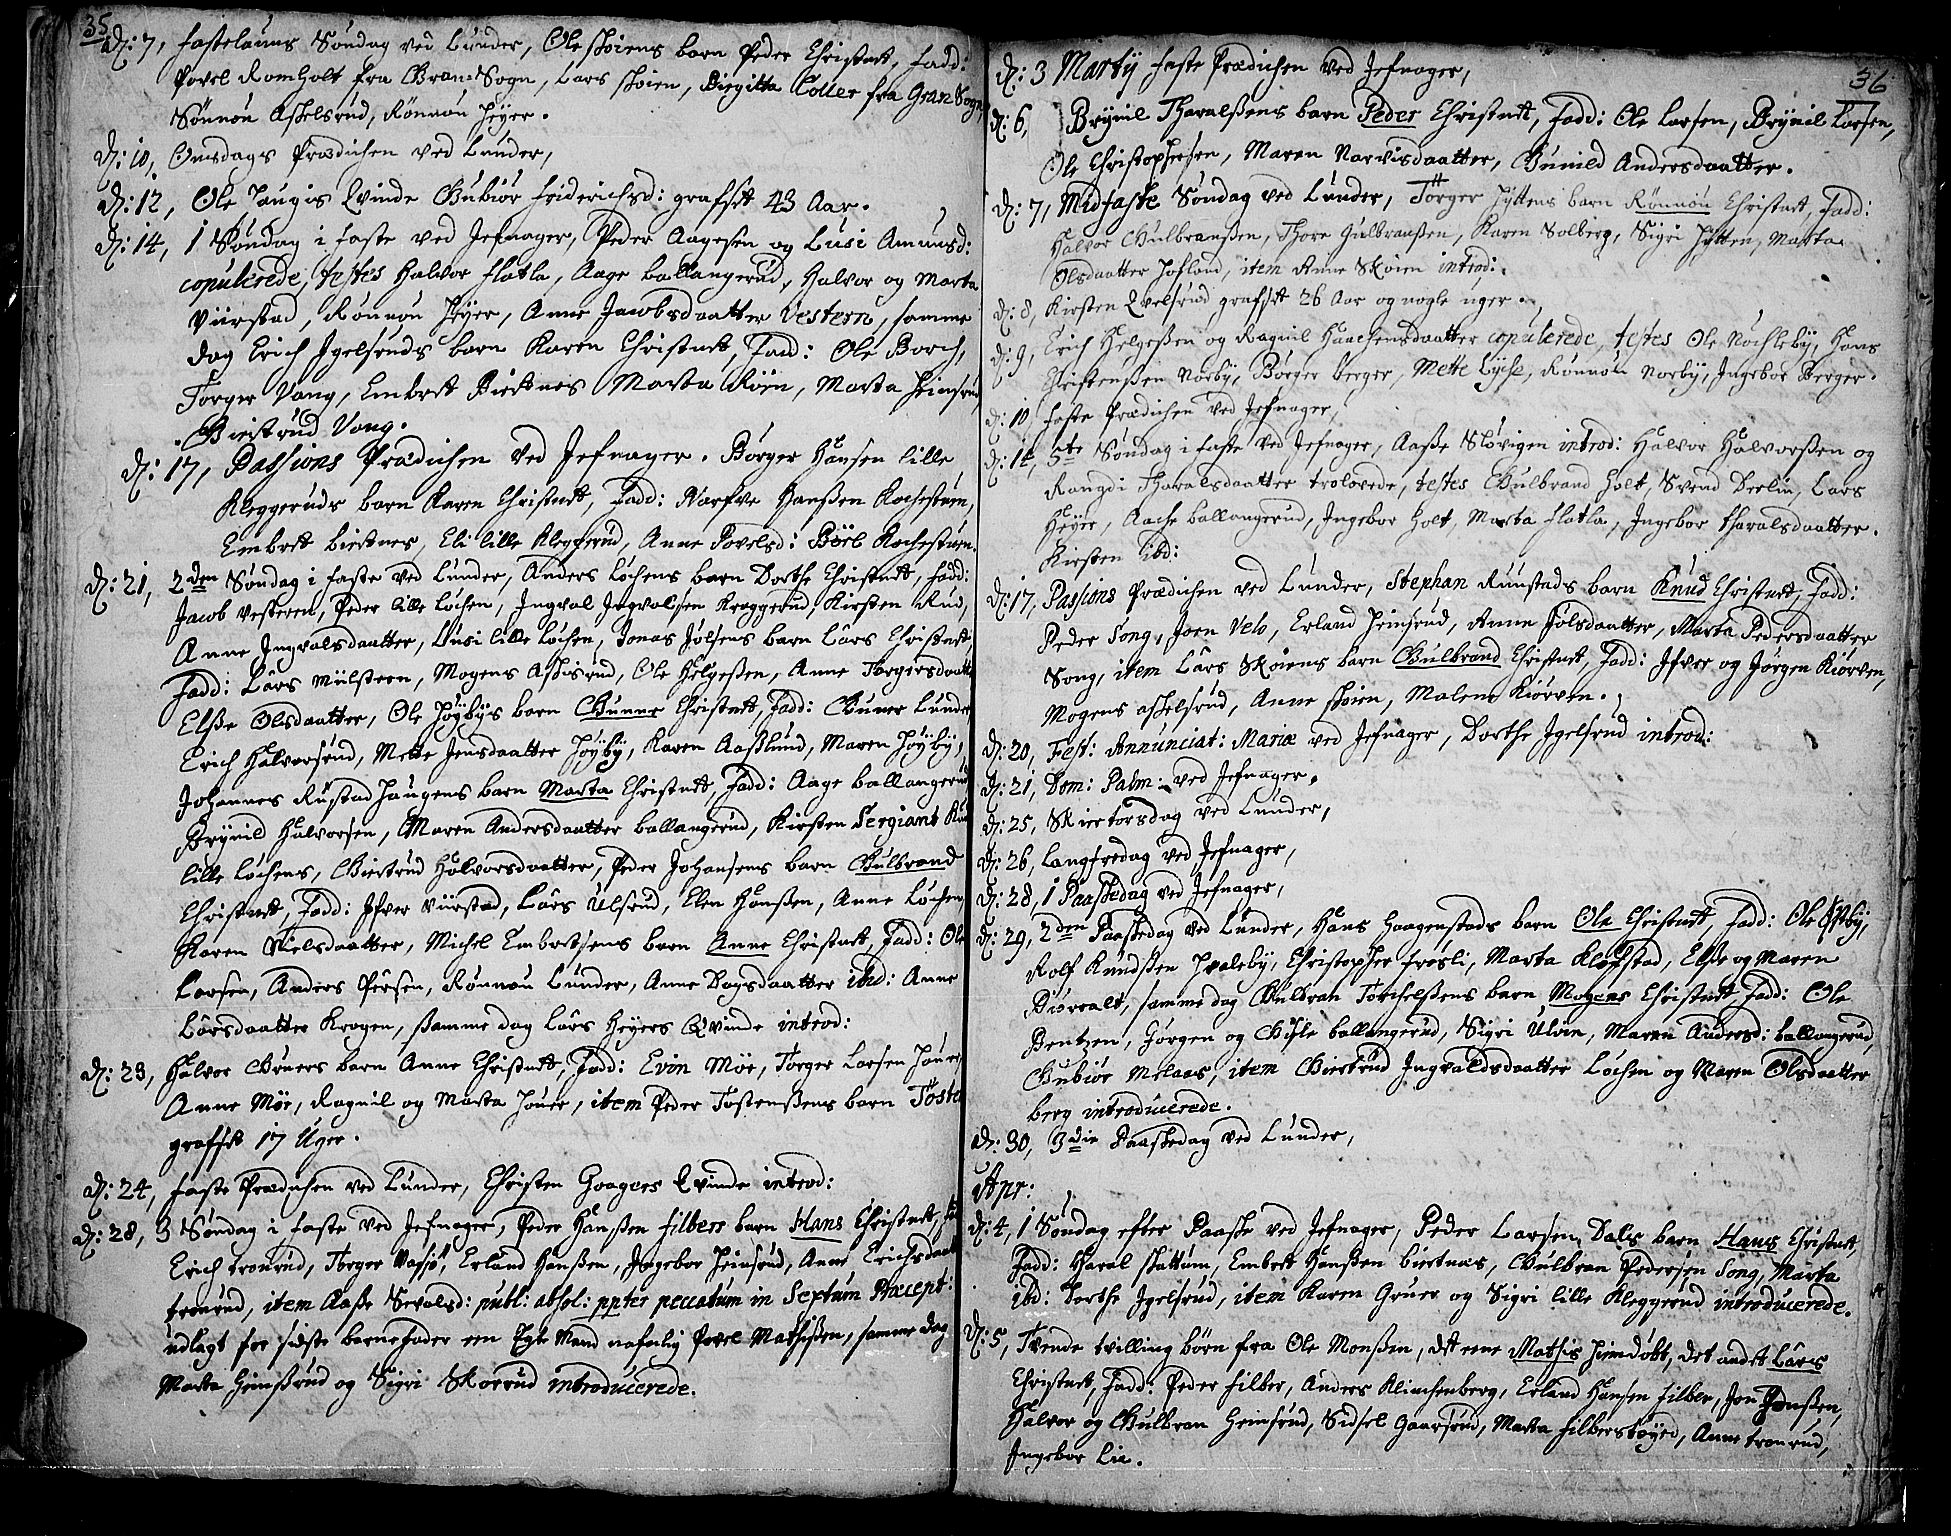 35
d: 7, Fastelauns Søndag ved Lunder, Ole skoiens barn Peder Christnet, Fadd:
Povel Romholt fra Gran Sogn, Lars skoien, Birgitta Coller fra Gran Sogn,
Sønnøu Askelsrud, Rønnou Heyer.
d: 10, Onsdags Prædichen ved Lunder,
d: 12, Ole Haugis Qvinde Gubiør Friderichsd: grafset 43 Aar.
d: 14, 1 Søndag i Faste ved Jefnager, Peder Aagesen og Lusi Amunsd:
copulerede, testes Halvor Flatla, Aage Ballangerud, Halvor og Marta
Viirstad, Rønnou Heyer, Anne Jacobsdaatter Vestern, samme
dag Erich Igelsruds barn Karen Christnet, Fad: Ole Borch,
Torger Vang, Embret Biertnes Marta Røin, Marta Heimsrud,
Giertrud Vang.
d: 17, Passions Prædichen ved Jefnager. Børger Hansen lille
Kleggeruds barn Karen Christnet, Fadd: Narfve Hanssen Kochestuen,
Embret Biertnes, Eli lille Kleggerud, Anne Povelsd: Børl Kochestuen.
d: 21, 2den Søndag i Faste ved Lunder, Anders Løchens barn Dorthe Christnet, Fadd:
Jacob Vesteren, Peder lille Løchen, Ingval Ingvalsen Kroggerud, Kirsten Rud,
Anne Ingvalsdaatter, Lusi lille Løchen, Jonas Jolsens barn Lars Christnet
Fadd: Lars Mulstern, Mogens Askisrud, Ole Helgessen, Anne Torgersdaatt
Elsse Olsdaatter, Ole Høybys barn Gunner Christnet, Fadd: Guner Lunder
Erich Halvorsrud, Mette Jensdaatter Høyby, Karen Aasslund, Maren Høyby,
Johannes Rustad Haugens barn Marta Christnet, Fadd: Aage Ballangerud
Brynild Halvorsen, Maren Andersdaatter Ballangerud, Kirsten Sergiant
lille Løchens, Giertrud Halvorsdaatter, Peder Johansens barn Gulbrand
Christnet, Fadd: Ifver Viirstad, Lars Ulsrud, Elen Hanssen, Anne Løchen
Karen Nielsdaatter, Michel Embretsens barn Anne Christnet, Fadd: Ole
Larsen, Anders Persen, Rønnou Lunder, Anne Dagsdaatter ibid: Anne
Larsdaatter Kragen, samme dag Lars Heyers Qvinde introd:
d: 23, Halvor Gruers barn Anne Christnet, Fadd: Evin Moe, Torger Larsen Houer,
Anne Moe, Ragnil og Marta Houer, item Peder Tostenssens barn Tosten
grafset 17 Uger.
d: 24, Faste Prædichen ved Lunder, Christen Graagers Qvinde introd:
d: 28, 3 Søndag i Faste ved Jefnager, Peder Hanssen Filbers barn Hans Christnet,
Erich Tronrud, Torger Vassø, Erland Hanssen, Ingebor Heimsrud, Anne Erichsdaat
Tronrud, item Aasse Sevalsd: publ: absol: ppter peccatum in Sextum Præcept:
udlagt for sidste barnefader een Egte Mand nafnlig Povel Mathissen, samme dag
Marta Heimssrud og Sigri Skorrud introducerede.

36
d: 3 Martij Faste Prædichen ved Jefnager,
d: 6, Brynil Tharalssens barn Peder Christnet, Fadd: Ole Larsen, Brynil Larsen,
Ole Christophersen, Maren Narvisdaatter, Gunild Andersdaatter.
d: 7, Midfaste Søndag ved Lunder, Torger Hyttens barn Rønnou Christnet, Fadd:
Halvor Gulbranssen, Thore Gulbranssen, Karen Solberg, Sigri Hytten, Marta
Olsdaatter Hofland, item Anne Skoien introd:
d: 8, Kirsten Qvelsrud grafset 26 Aar og nogle uger.
d: 9, Erich Helgessen og Ragnil Haachensdaatter copulerede, testes Ole Nochleby, Hans
Christenssen Norby, Børger Berger, Mette Lyche, Rønnou Norby, Ingebor Berger.
d: 10 Faste Prædichen ved Jefnager,
d: 14, 5te Søndag i Faste ved Jefnager, Aasse Sløvigen introd: Halvor Halvorssen og
Rangdi Tharalsdaatter trolovede, testes Gulbrand Holt, Svend Deelin, Lars
Heyer, Aache Ballangerud, Ingebor Holt, Marta Flatla, Ingebor Tharalsdaatter.
Kirsten ibd:
d: 17, Passions Prædichen ved Lunder, Stephan Ruustads barn Knud Christnet, Fadd:
Peder Song, Joen Velo, Erland Heimsrud, Anne Jolsdaatter, Marta Pedersdaatter
Song, item Lars Skoiens barn Gulbrand Christnet, Fadd: Ifver og Jørgen Kiørven,
Mogens Askelsrud, Anne skoien, Malene Kiørven.
d: 20, Fest: Annunciat: Mariæ ved Jefnager, Dorthe Igelsrud introd:
d: 21, Dom: Palm: ved Jefnager.
d: 25, Skiertorsdag ved Lunder,
d: 26, Langfredag ved Jefnager,
d: 28, 1 Paaskedag ved Jefnager,
d: 29, 2den Paaskedag ved Lunder, Hans Haagenstads barn Ole Christnet, Fadd: Ole Opby,
Rolf Knudssen Hvaleby, Christopher Frøsli, Marta Klofstad, Else og Maren
Biørvalt, samme dag Gulbran Torchelssens barn Mogens Christnet, Fadd: Ole
Bentzen, Jørgen og Gisle Ballangerud, Sigri Ulvin, Maren Andersd: Ballangerud,
Gubiør Melaas, item Giertrud Ingvaldsdaatter Løchen og Maren Olsdaatter
berg introducerede.
d: 30, 3die Paaskedag ved Lunder,
Apr:
d: 4, 1 Søndag efter Paaske ved Jefnager, Peder Larsen Dalis barn Hans Christnet,
Fadd: Haral skattum, Embret Hanssen Biertnes, Gulbran Pedersen Song, Marta
ibd: Dorthe Igelsrud, item Karen Gruer og Sigri lille Kleggerud introducerede.
d: 5, Tvende tvilling børn fra Ole Monssen, det eene Mathis Hiemdøbt, det andet Lars
Christnet, Fadd: Peder Filber, Anders Klinchenberg, Erland Hansen Filber, Jon Hanssen,
Halvor og Gulbran Heimsrud, Sidsel Gaarsrud, Marta Filberstøyed, Anne Tronrud,
Ingebor Lie.